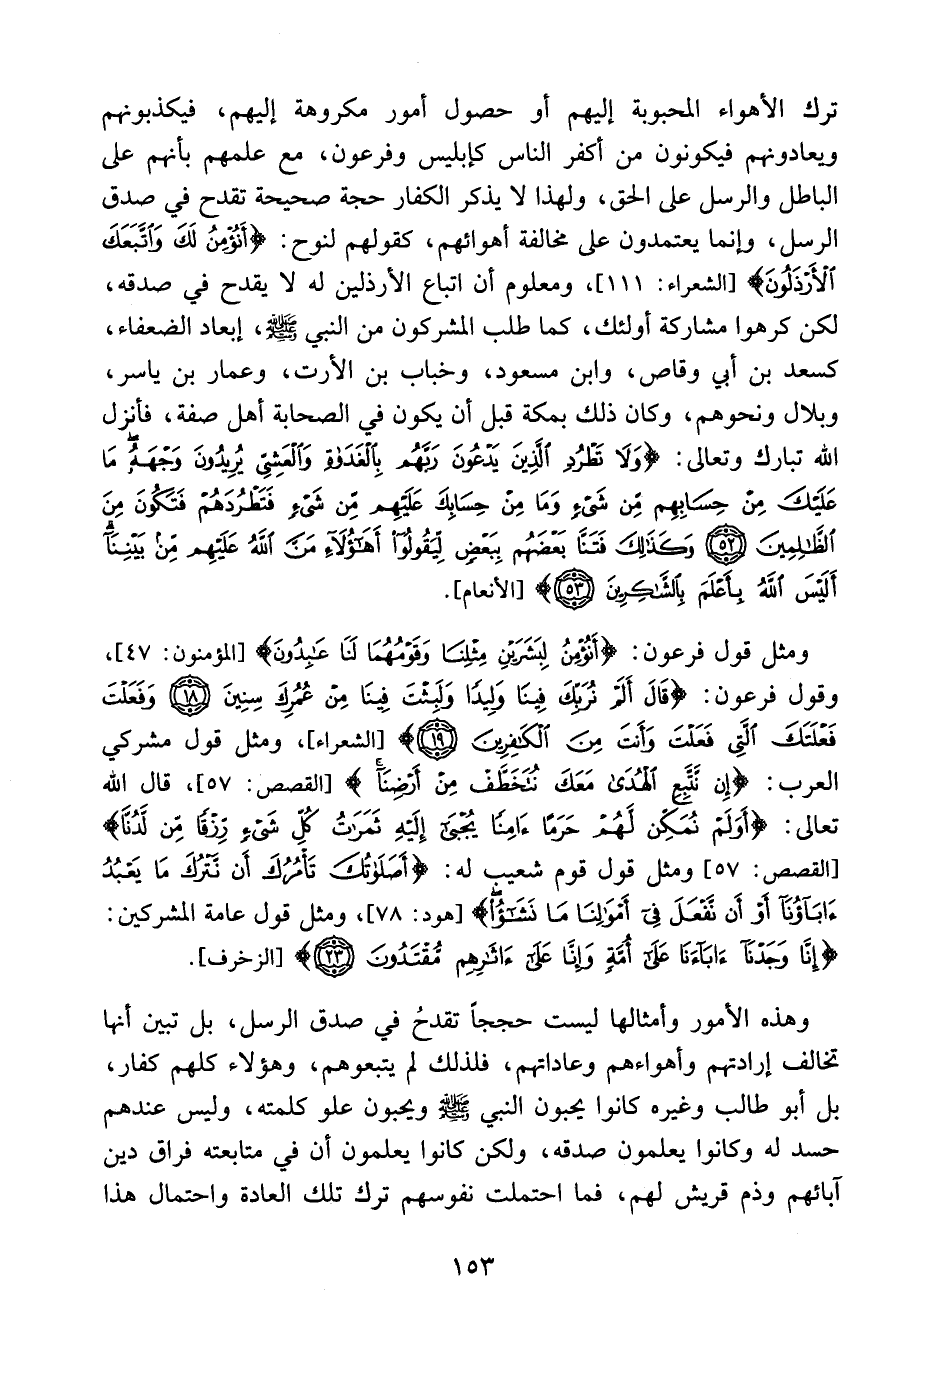 ترك الأهواء المحبوبة إليهم أو حصول أمور مكروهة إليهم، فيكذبونهم
ويعادونهم فيكونون من أكفر الناس كإبليس وفرعون، مع علمهم بأنهم على
الباطل والرسل على الحق، ولهذا لا يذكر الكفار حجة صحيحة تقدح في صدق
الرسل، وإنما يعتمدون على مخالفة أهوائهم، كقولهم لنوح: ﴿أَنُؤْمِنُ لَكَ وَٱتَّبَعَكَ
ٱلْأَرْذَلُونَ﴾ [الشعراء: ١١١]، ومعلوم أن اتباع الأرذلين له لا يقدح في صدقه،
لكن كرهوا مشاركة أولئك، كما طلب المشركون من النبي ﷺ، إبعاد الضعفاء،
كسعد بن أبي وقاص، وابن مسعود، وخباب بن الأرت، وعمار بن ياسر،
وبلال ونحوهم، وكان ذلك بمكة قبل أن يكون في الصحابة أهل صفة، فأنزل
الله تبارك وتعالى: ﴿وَلَا تَطْرُدِ ٱلَّذِينَ يَدْعُونَ رَبَّهُم بِٱلْغَدَوٰةِ وَٱلْعَشِيِّ يُرِيدُونَ وَجْهَهُۥۖ مَا
عَلَيْكَ مِنْ حِسَابِهِم مِّن شَيْءٍ وَمَا مِنْ حِسَابِكَ عَلَيْهِم مِّن شَيْءٍ فَتَطْرُدَهُمْ فَتَكُونَ مِنَ
ٱلظَّٰلِمِينَ ۝٥٢ وَكَذَٰلِكَ فَتَنَّا بَعْضَهُم بِبَعْضٍ لِّيَقُولُوٓا۟ أَهَٰٓؤُلَآءِ مَنَّ ٱللَّهُ عَلَيْهِم مِّنۢ بَيْنِنَآۗ
أَلَيْسَ ٱللَّهُ بِأَعْلَمَ بِٱلشَّٰكِرِينَ ۝٥٣﴾ [الأنعام].
ومثل قول فرعون: ﴿أَنُؤْمِنُ لِبَشَرَيْنِ مِثْلِنَا وَقَوْمُهُمَا لَنَا عَٰبِدُونَ﴾ [المؤمنون: ٤٧]،
وقول فرعون: ﴿قَالَ أَلَمْ نُرَبِّكَ فِينَا وَلِيدًا وَلَبِثْتَ فِينَا مِنْ عُمُرِكَ سِنِينَ ۝١٨ وَفَعَلْتَ
فَعْلَتَكَ ٱلَّتِي فَعَلْتَ وَأَنتَ مِنَ ٱلْكَٰفِرِينَ ۝١٩﴾ [الشعراء]، ومثل قول مشركي
العرب: ﴿إِن نَّتَّبِعِ ٱلْهُدَىٰ مَعَكَ نُتَخَطَّفْ مِنْ أَرْضِنَآۚ﴾ [القصص: ٥٧]، قال الله
تعالى: ﴿أَوَلَمْ نُمَكِّن لَّهُمْ حَرَمًا ءَامِنًا يُجْبَىٰٓ إِلَيْهِ ثَمَرَٰتُ كُلِّ شَيْءٍ رِّزْقًا مِّن لَّدُنَّا﴾
[القصص: ٥٧] ومثل قول قوم شعيب له: ﴿أَصَلَوٰتُكَ تَأْمُرُكَ أَن نَّتْرُكَ مَا يَعْبُدُ
ءَابَآؤُنَآ أَوْ أَن نَّفْعَلَ فِىٓ أَمْوَٰلِنَا مَا نَشَٰٓؤُا۟ۖ﴾ [هود: ٧٨]، ومثل قول عامة المشركين:
﴿إِنَّا وَجَدْنَآ ءَابَآءَنَا عَلَىٰٓ أُمَّةٍ وَإِنَّا عَلَىٰٓ ءَاثَٰرِهِم مُّقْتَدُونَ ۝٢٣﴾ [الزخرف].
وهذه الأمور وأمثالها ليست حججاً تقدحُ في صدق الرسل، بل تبين أنها
تخالف إرادتهم وأهواءهم وعاداتهم، فلذلك لم يتبعوهم، وهؤلاء كلهم كفار،
بل أبو طالب وغيره كانوا يحبون النبي ﷺ ويحبون علو كلمته، وليس عندهم
حسد له وكانوا يعلمون صدقه، ولكن كانوا يعلمون أن في متابعته فراق دين
آبائهم وذم قريش لهم، فما احتملت نفوسهم ترك تلك العادة واحتمال هذا
١٥٣